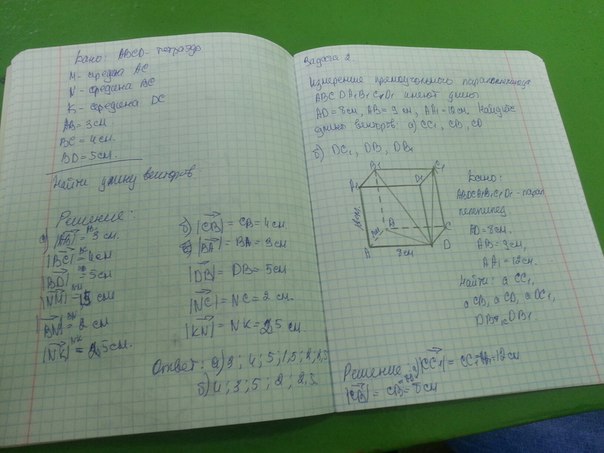 Дано: ABCD - тетраэдр
M - средина AC
N - средина BC
K - средина DC
AB = 3 см.
BC = 4 см.
BD = 5 см.
Найти длину векторов
Решение:
а) |AB| = 3 см.
|BC| = 4 см
|BD| = 5 см
|NM| = 1,5 см
|BN| = 2 см
|NK| = 2,5 см.
б) |CB| = CB = 4 см
|BA| = BA = 3 см
|DB| = DB = 5 см
|NC| = NC = 2 см.
|KN| = NK = 2,5 см
Ответ: а) 3; 4; 5; 1,5; 2; 2,5
б) 4; 3; 5; 2; 2,5.
Задача 2
Измерение прямоугольного параллелепипеда
ABCDA1B1C1D1 имеют длину
AD = 8 см, AB = 9 см, AA1 = 12 см. Найдите
длины векторов: а) CC1, CB, CD
б) DC1, DB, DB1
B1 C1
A1 D1
B C
A D
8 см
Дано:
ABCDA1B1C1D1 - парал
лелепипед
AD = 8 см.
AB = 9 см,
AA1 = 12 см.
Найти: а CC1,
а CB, а CD, а DC1,
DB, DB1
Решение: а) |CC1| = CC1 = 12 см
|CB| = CB = 8 см